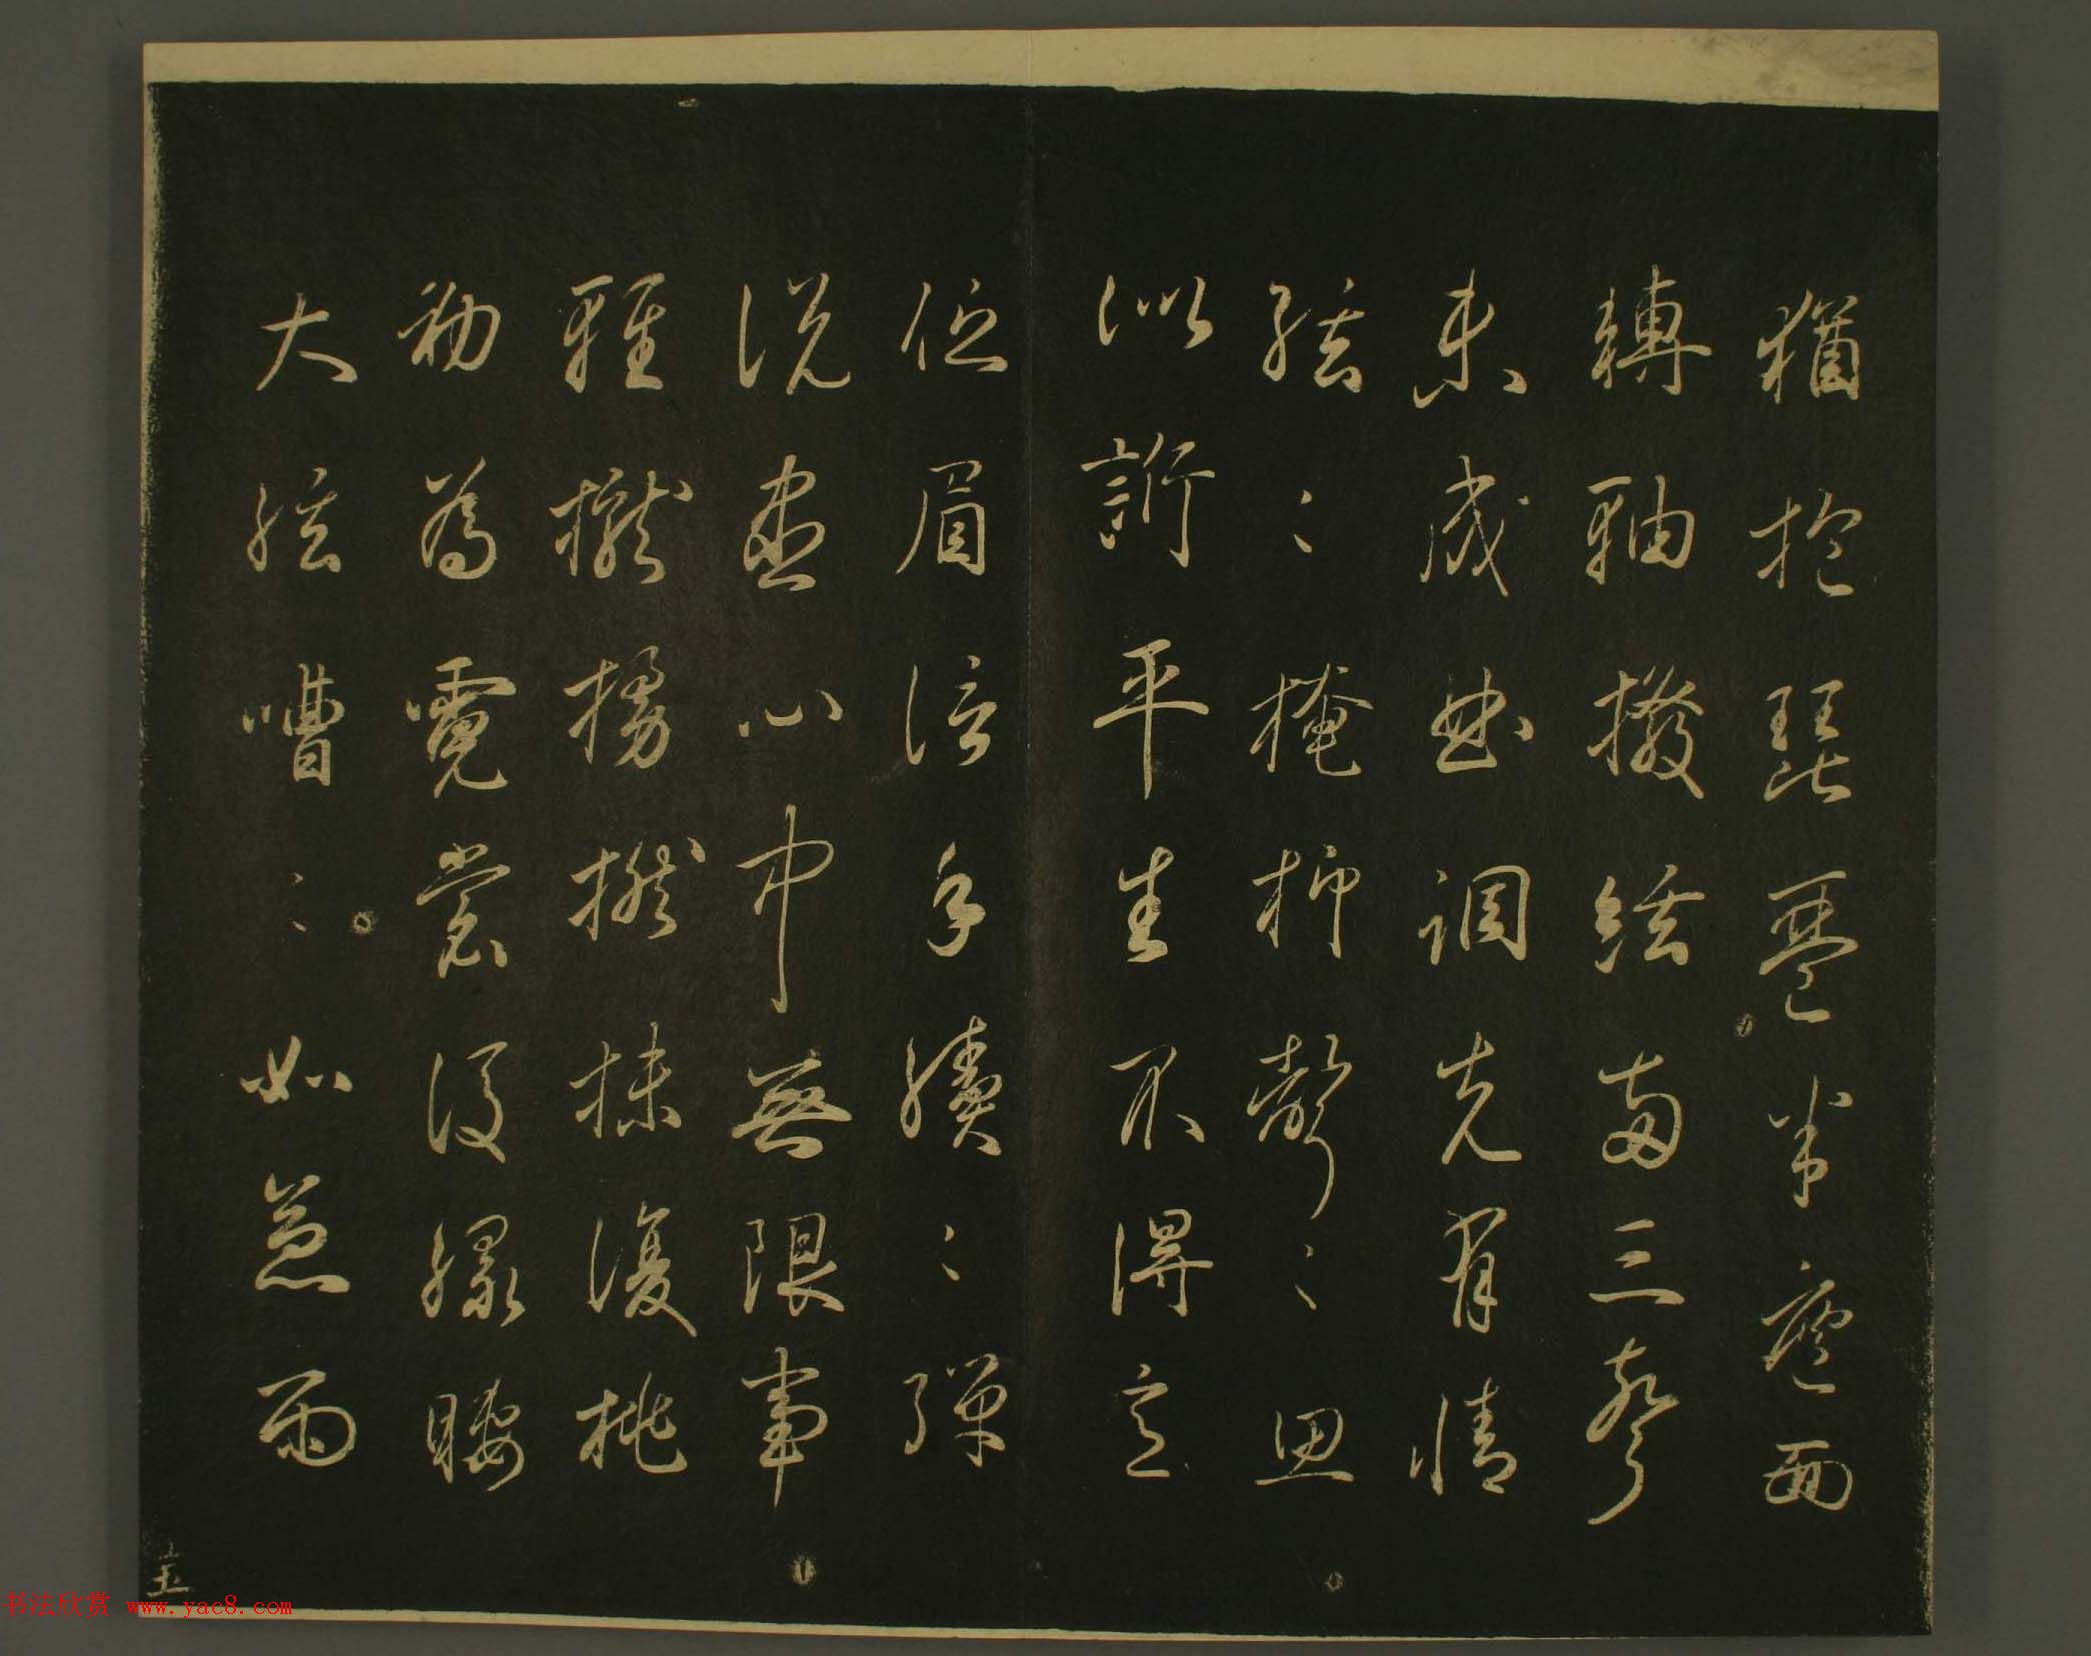 猶抱琵琶半遮面
轉軸撥絃兩三聲
未成曲調先有情
絃〻掩抑聲〻思
似訴平生不得意
低眉信手續〻彈
說盡心中無限事
輕攏慢撚抹復挑
初為霓裳後綠腰
大絃嘈〻如急雨
书法欣赏 www.yac8.com